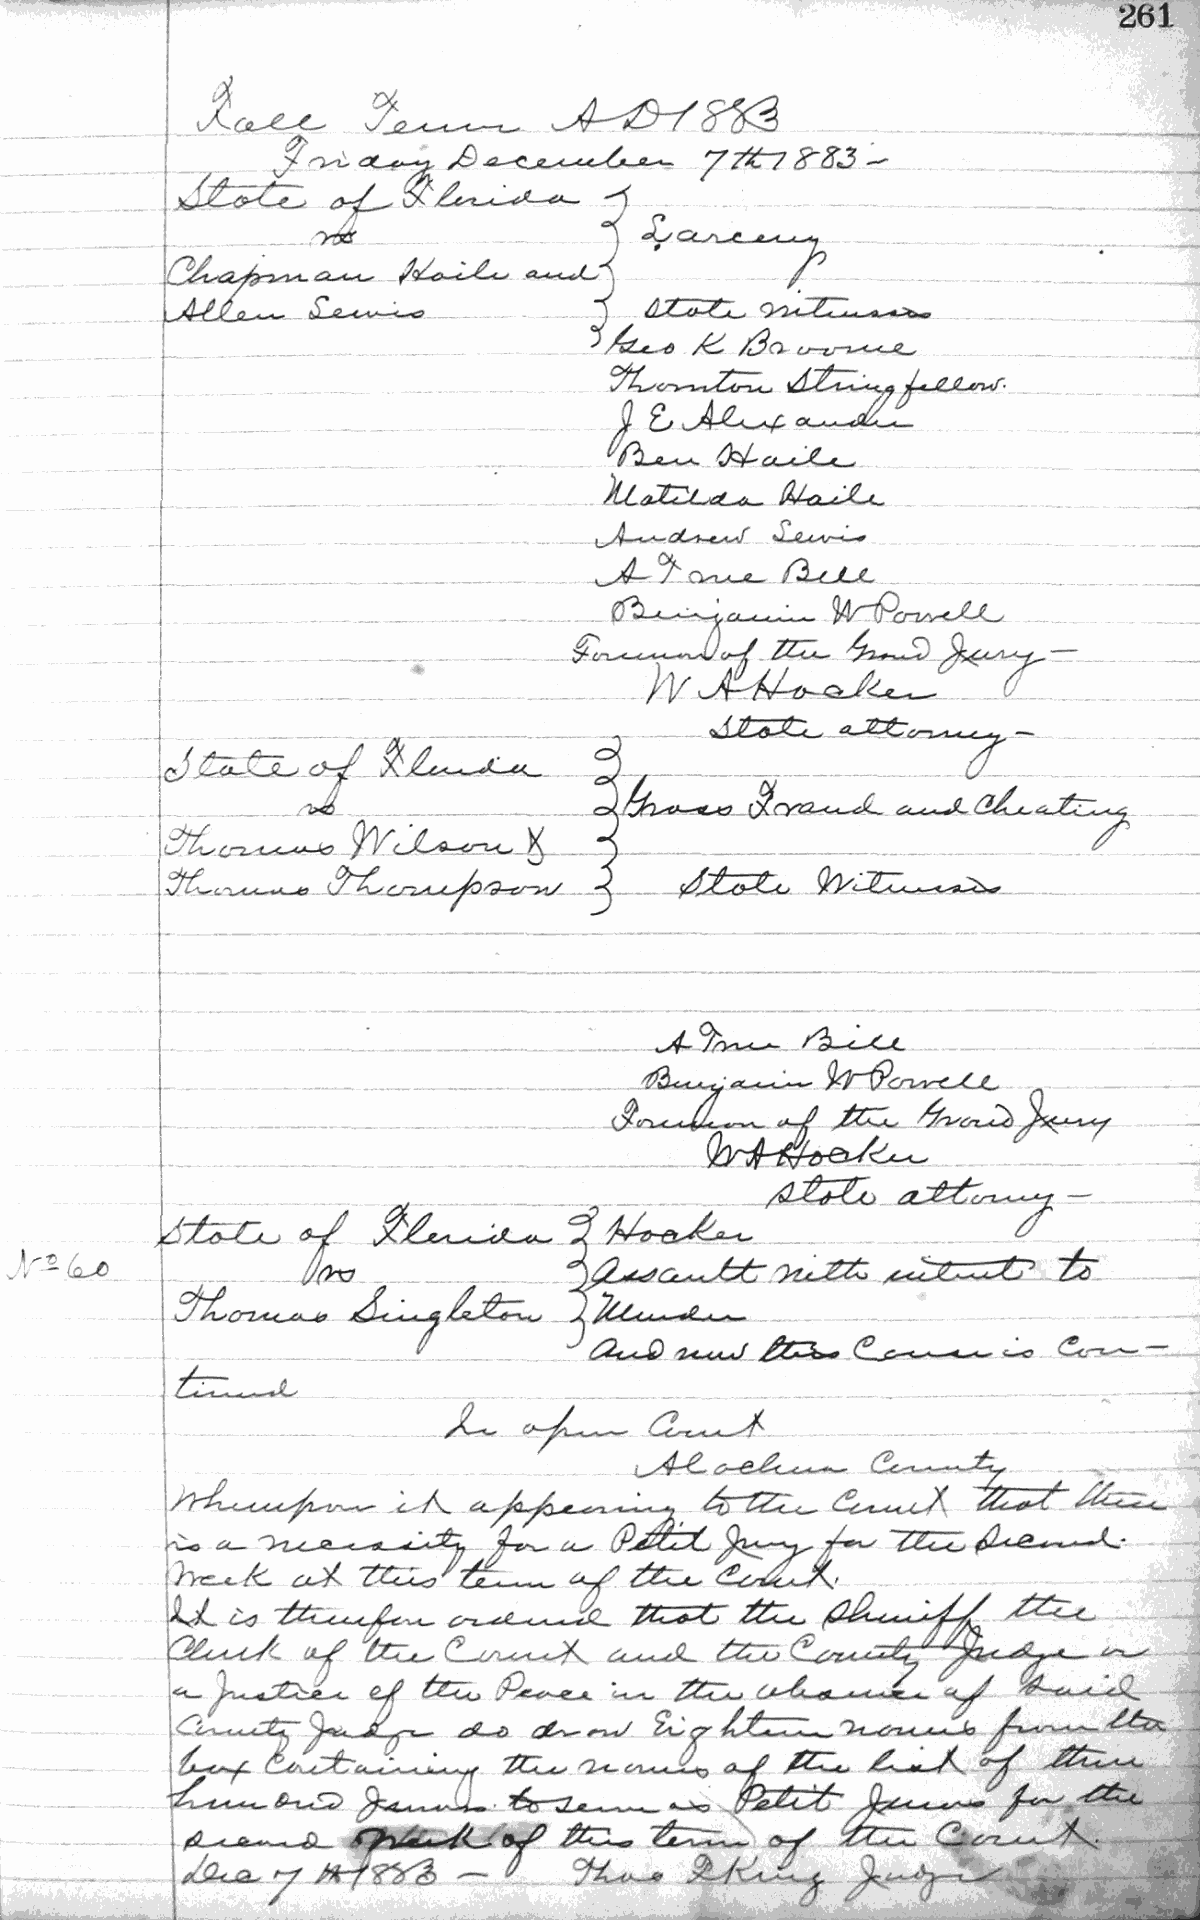 261
Fall Term A D 1883
Friday December 7th 1883 -
State of Florida
vs
Larceny
Chapman Haile and
Allen Lewis
State witnesses
Geo K Broome
Thornton Stringfellow.
J E Alexander
Ben Haile
Matilda Haile
Andrew Lewis
A True Bill
Benjamin W Powell
Foreman of the Grand Jury -
W A Hocker
State attorney -
State of Florida
vs
Gross Fraud and Cheating
Thomas Wilson &
Thomas Thompson
State Witnesses
A True Bill
Benjamin W Powell
Foreman of the Grand Jury
W A Hocker
State attorney -
State of Florida
Hocker
No 60
vs
Assault with intent to
Thomas Singleton
Murder
And now this Cause is Con-
tinued
In open Court
Alachua County
Whereupon it appearing to the Court that there
is a necessity for a Petit Jury for the Second
Week at this term of the Court.
It is therefore ordered that the Sheriff the
Clerk of the Court and the County Judge or
a Justice of the Peace in the absence of Said
County Judge do draw Eighteen names from the
box Containing the names of the list of three
hundred Jurors to serve as Petit Jurors for the
second Week of this term of the Court.
Dec 7th 1883 - Thos F King Judge